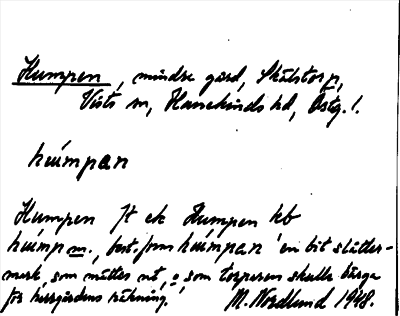 Humpen, mindre gård, Skälstorp,
Vists sn, Hanekinds hd, Östg. l.
hu̇mpan
Humpen Jt ek Humpen hb
hu̇mp m., best. form hu̇mpan 'en bit slåtter-
mark, som mättes ut, o som torparen skulle bärga
för herrgårdens räkning.' M. Nordlund 1948.